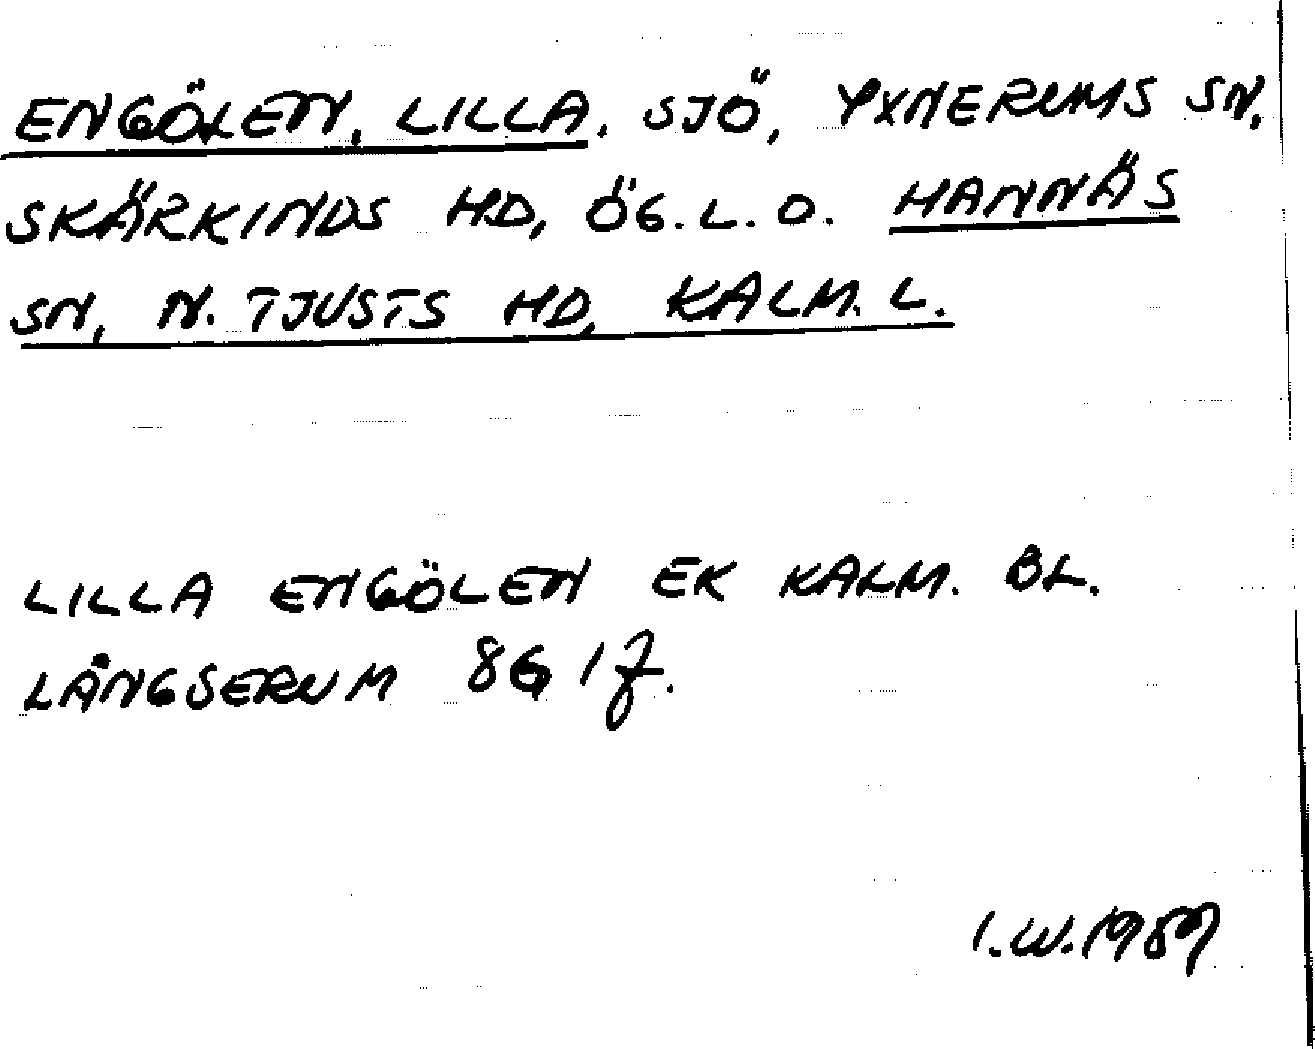 ENGÖLEN, LILLA. SJÖ, YXNERUMS SN,
SKÄRKINDS HD, ÖG.L. O. HANNÄS
SN, N. TJUSTS HD, KALM. L.
LILLA ENGÖLEN EK KALM. BL.
LÅNGSERUM 8G 1f.
I.W. 1989